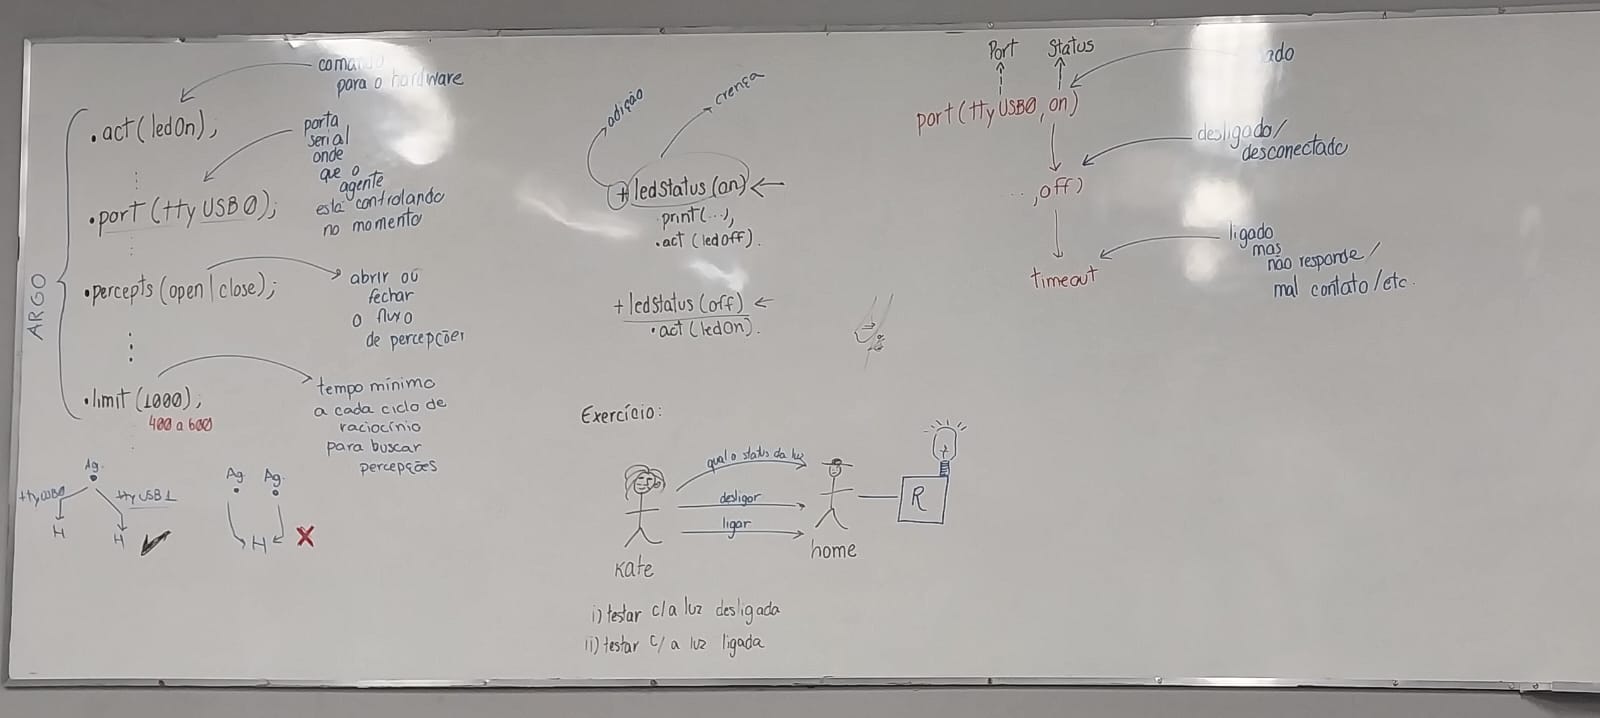 ARGO
.act(ledOn);
comando
para o hardware
.port(ttyUSB0);
porta
serial
onde
que o
agente
está controlando
no momento
.percepts(open|close);
abrir ou
fechar
o fluxo
de percepções
.limit(1000);
400 a 600
tempo mínimo
a cada ciclo de
raciocínio
para buscar
percepções
Ag.
ttyUSB0
ttyUSB1
H
H
Ag.
Ag.
H
adição
crença
+ledStatus(on)<-
print(...),
.act(ledOff).
+ledStatus(off)<-
.act(ledOn).
Exercício:
qual o status da luz
desligar
ligar
Kate
home
R
i) testar c/a luz desligada
ii) testar c/ a luz ligada
Port
Status
port(ttyUSB0,on)
desligado/
desconectado
...,off)
ligado
mas
não responde/
mal contato/etc.
timeout